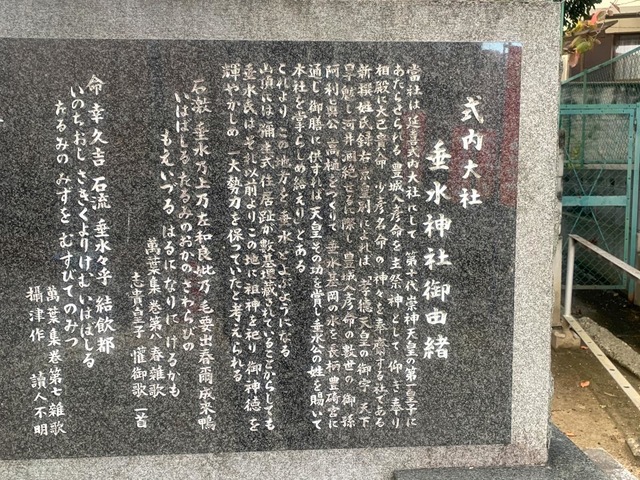 式内大社
垂水神社御由緒
當社は 延喜式内大社にして 第十代崇神天皇の第一皇子に
あたらせられる 豊城入彦命を主祭神として 仰ぎ奉り
相殿に大己貴命 少彦名命の神々を奉齋する社である
新撰姓氏録右京皇別によれば「孝徳天皇の御宇 天下
旱魃し河井涸絶せるに際し 豊城入彦命の数世の御孫
阿利真公 高樋をつくりて 垂水基岡の水を長柄豊碕宮に
通し 御膳に供すれば 天皇その功を賞し垂水公の姓を賜いて
本社を掌らしめ給えり」とある
これより この地方を 垂水 とよぶようになる
山頂には 彌生式住居跡が数基埋蔵されていることからしても
垂水氏は それ以前よりこの地に祖神を祀り 御神徳を
輝やかしめ 一大勢力を保っていたと考えられる
石激 垂水乃上乃左和良妣乃 毛要出春爾成来鴨
いはばしる たるみのおかの さわらびの
もえいづる はるになりにけるかも
萬葉集 巻第八 春雑歌
志貴皇子 懽御歌 一首
命 幸久吉 石流 垂水々乎 結飲都
いのちおし さきくよりけむ いははしる
たるみの みずを むすびてのみつ
萬葉集 巻第七 雑歌
攝津作 讀人不明